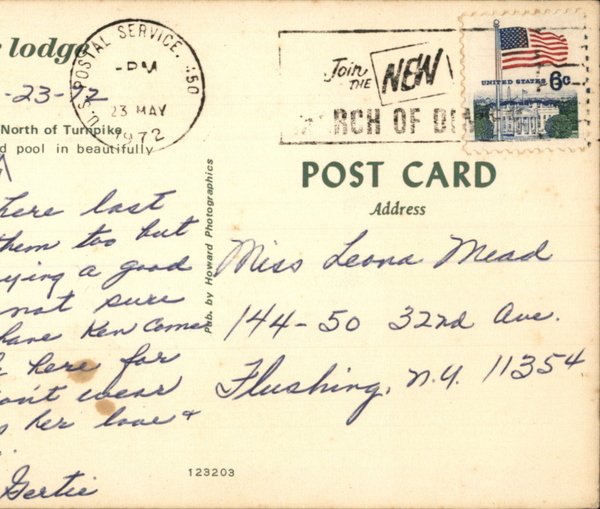 lodge
-23-72
North of Turnpike
d pool in beautifully
here last
them too but
ying a good
not sure
have Ken come
here for
on't wear
her love +
Gertie
U.S. POSTAL SERVICE. 450
-PM
23 MAY
1972
Join THE NEW
RCH OF DI
UNITED STATES 6c
Pub. by Howard Photographics
POST CARD
Address
Miss Leona Mead
144-50 32nd Ave.
Flushing, N.Y. 11354
123203